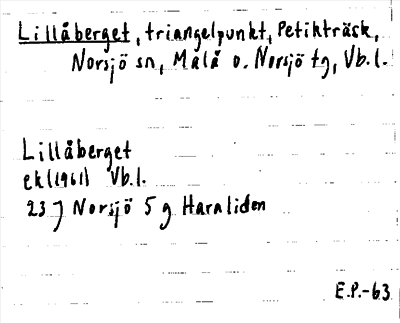 Lillåberget, triangelpunkt, Petikträsk,
Norsjö sn, Malå o. Norsjö tg, Vb.l.
Lillåberget
ek(1961) Vb.l.
23 J Norsjö 5 g Harnliden
E.P.-63